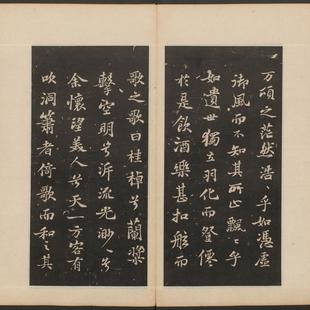 万顷之茫然浩〻乎如凭虚
御风而不知其所止飘〻乎
如遗世独立羽化而登僊
於是飲酒樂甚扣舷而
歌之歌曰桂棹兮蘭槳
擊空明兮泝流光渺〻兮
余懷望美人兮天一方客有
吹洞簫者倚歌而和之其